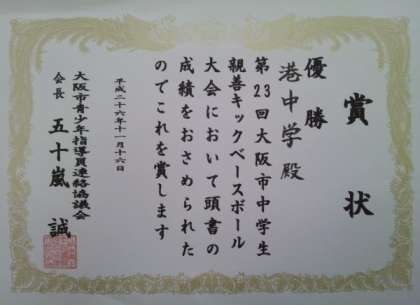 賞状
優勝
港中学殿
第23回大阪市中学生
親善キックベースボール
大会において頭書の
成績をおさめられた
のでこれを賞します
平成二十六年十一月十六日
大阪市青少年指導員連絡協議会
会長 五十嵐 誠